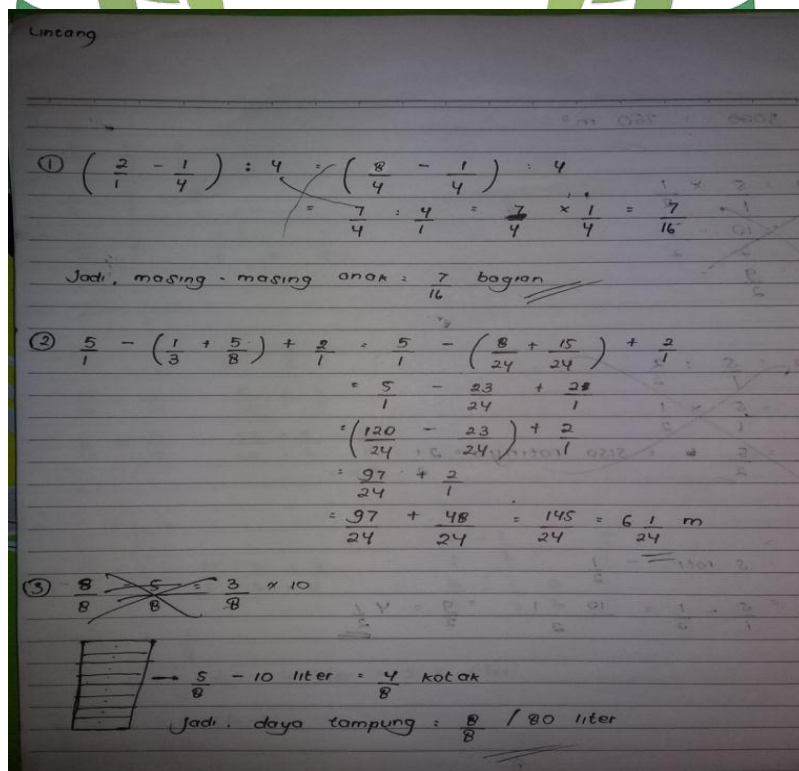 Lintang
① ( 2/1 - 1/4 ) : 4 = ( 8/4 - 1/4 ) : 4
= 7/4 : 4/1 = 7/4 × 1/4 = 7/16
Jadi, masing - masing anak = 7/16 bagian
② 5/1 - ( 1/3 + 5/8 ) + 2/1 = 5/1 - ( 8/24 + 15/24 ) + 2/1
= 5/1 - 23/24 + 2/1
= ( 120/24 - 23/24 ) + 2/1
= 97/24 + 2/1
= 97/24 + 48/24 = 145/24 = 6 1/24 m
③ 8/8 - 5/8 = 3/8 × 10
→ 5/8 - 10 liter = 4/8 kotak
Jadi. daya tampung = 8/8 / 80 liter